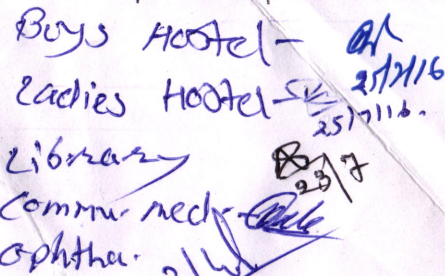 Boys Hostel - 25/7/16
Ladies Hostel - 25/7/16.
Library 23/7
Commu. med -
Ophtha.